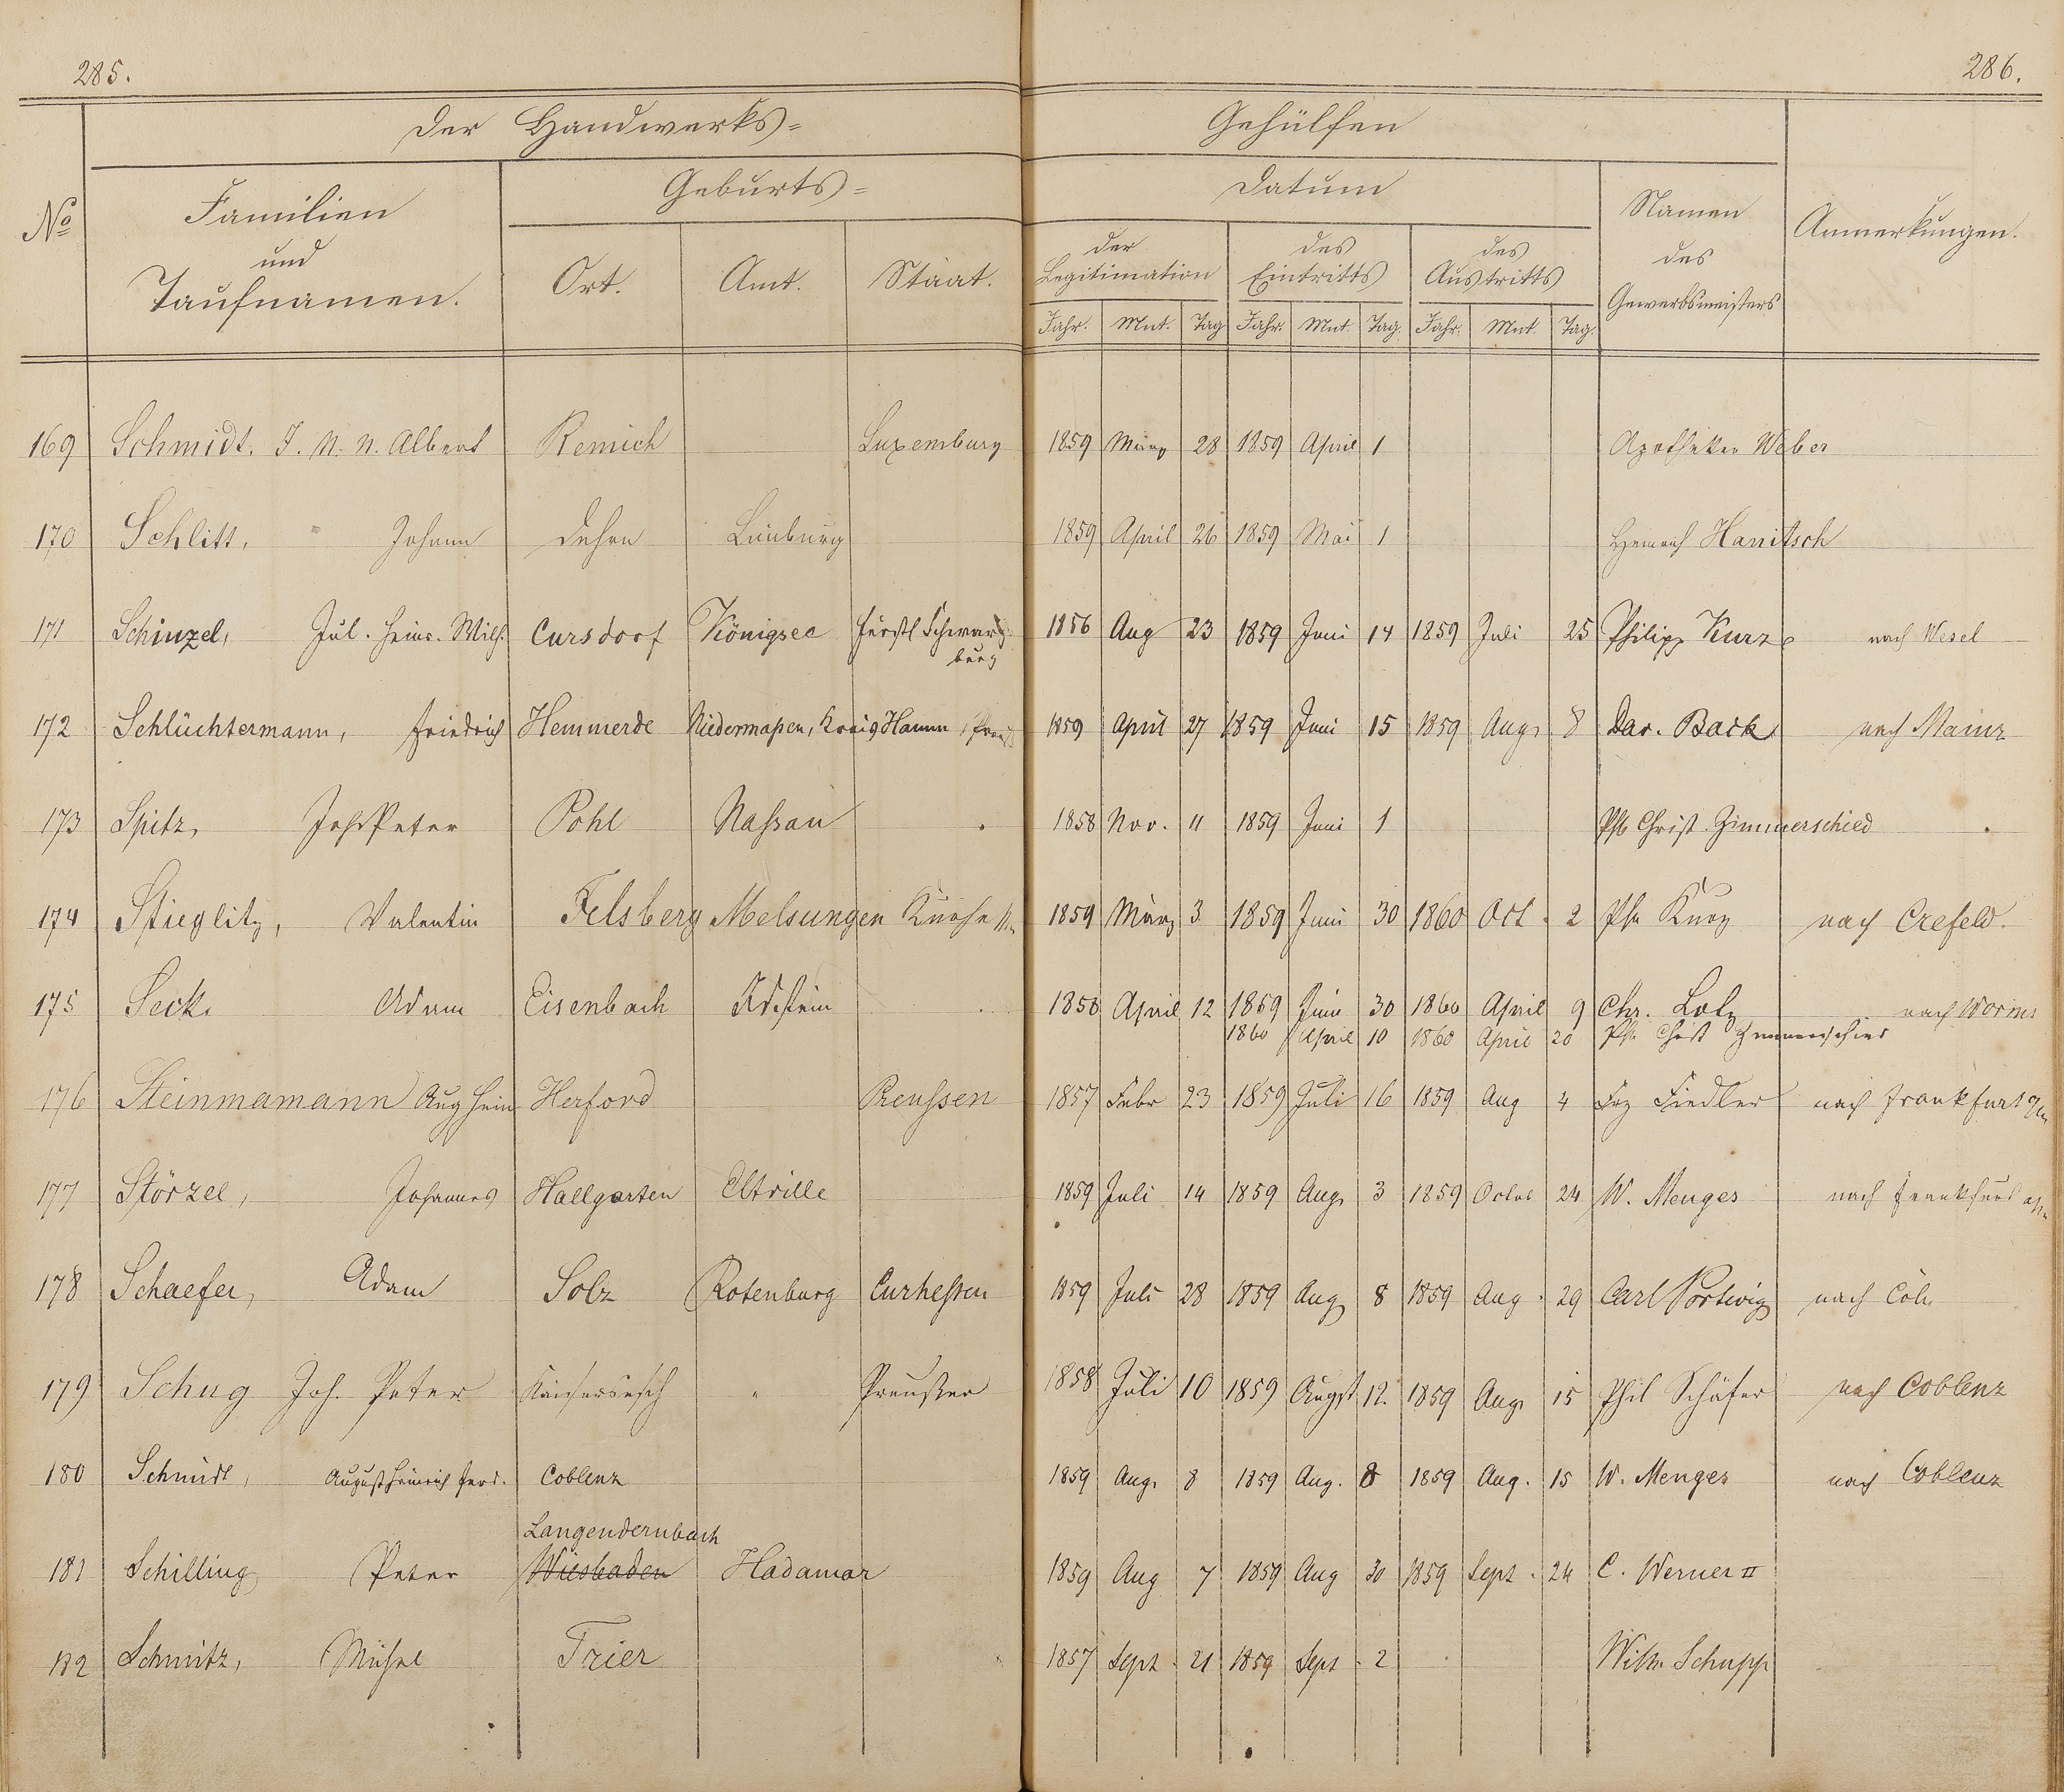 285.
286.
Der Handwerks=
Gehülfen
No
Familien
und
Taufnamen.
Geburts=
Ort.
Amt.
Staat.
Datum
der
Legitimation
des
Eintritts
des
Austritts
Jahr. Mnt. Tag Jahr. Mnt. Tag. Jahr. Mnt. Tag.
Namen
des
Gewerbsmeisters
Anmerkungen.
169 Schmidt. J. N. N. Albert Remich Luxemburg 1859 März 28 1859 April 1 Apotheker Weber
170 Schlitt, Johann Dehrn Limburg 1859 April 26 1859 Mai 1 Heinrich Hanitsch
171 Schinzel, Jul. Heinr. Wilh. Cursdorf Königsee Fürstl Schwarz-
burg 1856 Aug 23 1859 Juni 14 1859 Juli 25 Philipp Kurz nach Wesel
172 Schlüchtermann, Friedrich Hemmerde Niedermaßen, Kreis Hamm, Preuß 1859 April 27 1859 Juni 15 1859 Aug. 8 Dav. Back nach Mainz
173 Spitz, Joh Peter Pohl Naßau 1858 Nov. 11 1859 Juni 1 Ph Christ. Zimmerschied
174 Stieglitz, Valentin Felsberg Melsungen Kurhessen 1859 März 3 1859 Juni 30 1860 Oct. 2 Ph. Kurz nach Crefeld.
175 Seck. Adam Eisenbach Idstein 1858 April 12 1859 Juni 30 1860 April 9 Chr. Lotz nach Worms
1860 April 10 1860 April 20 Ph. Christ Zimmerschied
176 Steinmamann Aug Hein Herford Preußsen 1857 Febr 23 1859 Juli 16 1859 Aug 4 Frz Fiedler nach Frankfurt a/m
177 Störzel, Johannes Hallgarten Eltville 1859 Juli 14 1859 Aug. 3 1859 Octob 24 W. Menges nach Frankfurt a/m
178 Schaefer, Adam Solz Rotenburg Curheßen 1859 Juli 28 1859 Aug 8 1859 Aug. 29 Carl Portwig nach Cöln
179 Schug Joh. Peter Kaisersesch " Preußen 1858 Juli 10 1859 Augst 12. 1859 Aug. 15 Phil Schäfer nach Coblenz
180 Schmidt, August Heinrich Ferd. Coblenz 1859 Aug. 8 1859 Aug. 8 1859 Aug. 15 W. Menges nach Coblenz
Langendernbach
181 Schilling Peter Wiesbaden Hadamar 1859 Aug 7 1859 Aug 30 1859 Sept. 24 C. Werner II
182 Schmitz, Michel Trier 1857 Sept. 21 1859 Sept. 2 Wilh. Schupp